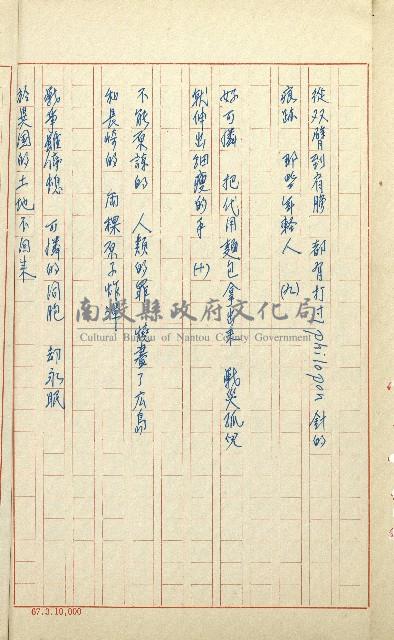 從双臂到肩膀　都有打过philopon針的
痕跡　那些年輕人　(九)
好可憐　把代用麵包拿出來　戰災孤児
就伸出細瘦的手　(十)
不能原諒的　人類的罪　燒盡了広島的
和長崎的　兩棵原子炸彈
戰爭雖停熄　可憐的同胞　却永眠
於異国的土地不回來
南投縣政府文化局
Cultural Affairs Bureau of Nantou County Government
67.3.10,000